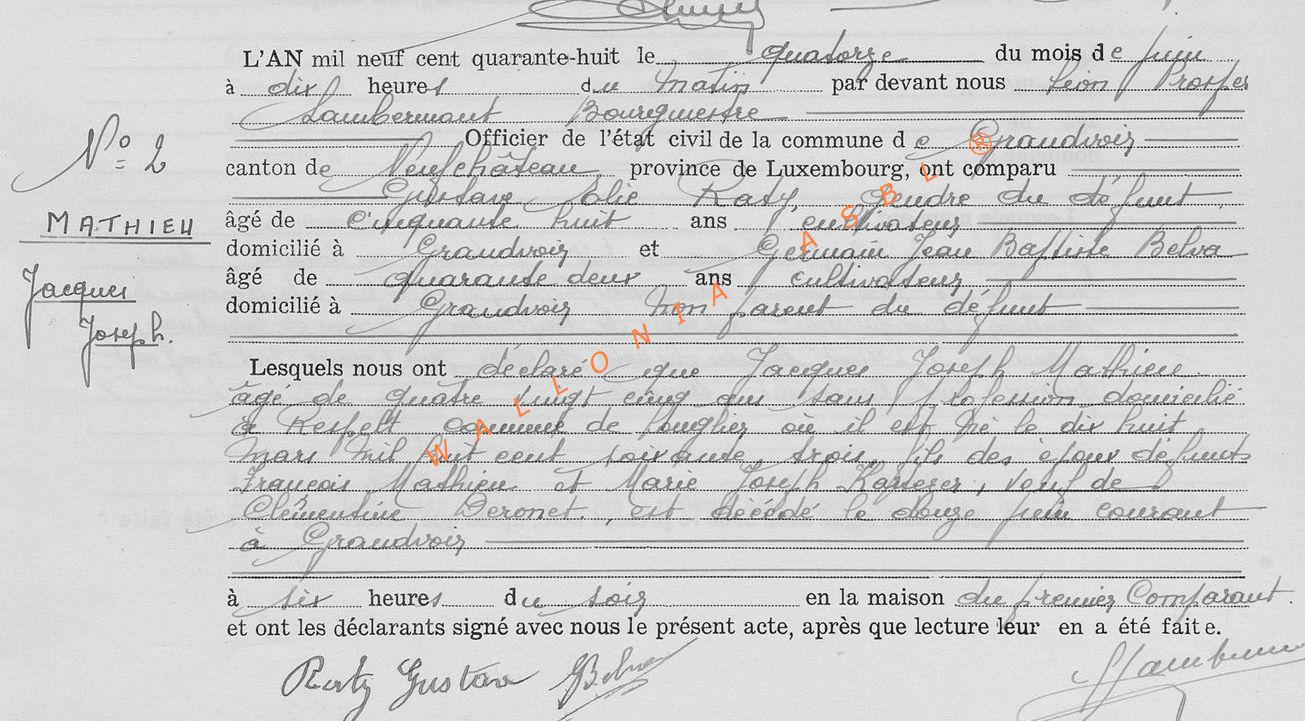 L'AN mil neuf cent quarante-huit le quatorze du mois de juin
à dix heures du matin par devant nous Léon Prosper
Lambermont Bourgmestre
Officier de l'état civil de la commune de Grandvoir
N° 2
canton de Neufchâteau, province de Luxembourg, ont comparu
Gustave Raty, gendre du défunt
MATHIEU
âgé de cinquante huit ans cultivateur
domicilié à Grandvoir et Germain Jean Baptiste Belva
Jacques
âgé de quarante deux ans cultivateur
domicilié à Grandvoir non parent du défunt
Joseph.
Lesquels nous ont déclaré que Jacques Joseph Mathieu
âgé de quatre vingt cinq ans sans profession domicilié
à Respelt commune de Longlier où il est né le dix huit
mars mil huit cent soixante trois, fils des époux défunts
François Mathieu et Marie Joseph, veuf de
Clémentine, est décédé le douze juin courant
à Grandvoir
à six heures du soir en la maison du premier Comparant.
et ont les déclarants signé avec nous le présent acte, après que lecture leur en a été faite.
Raty Gustave GBelva
WALLONIA ASBL ®